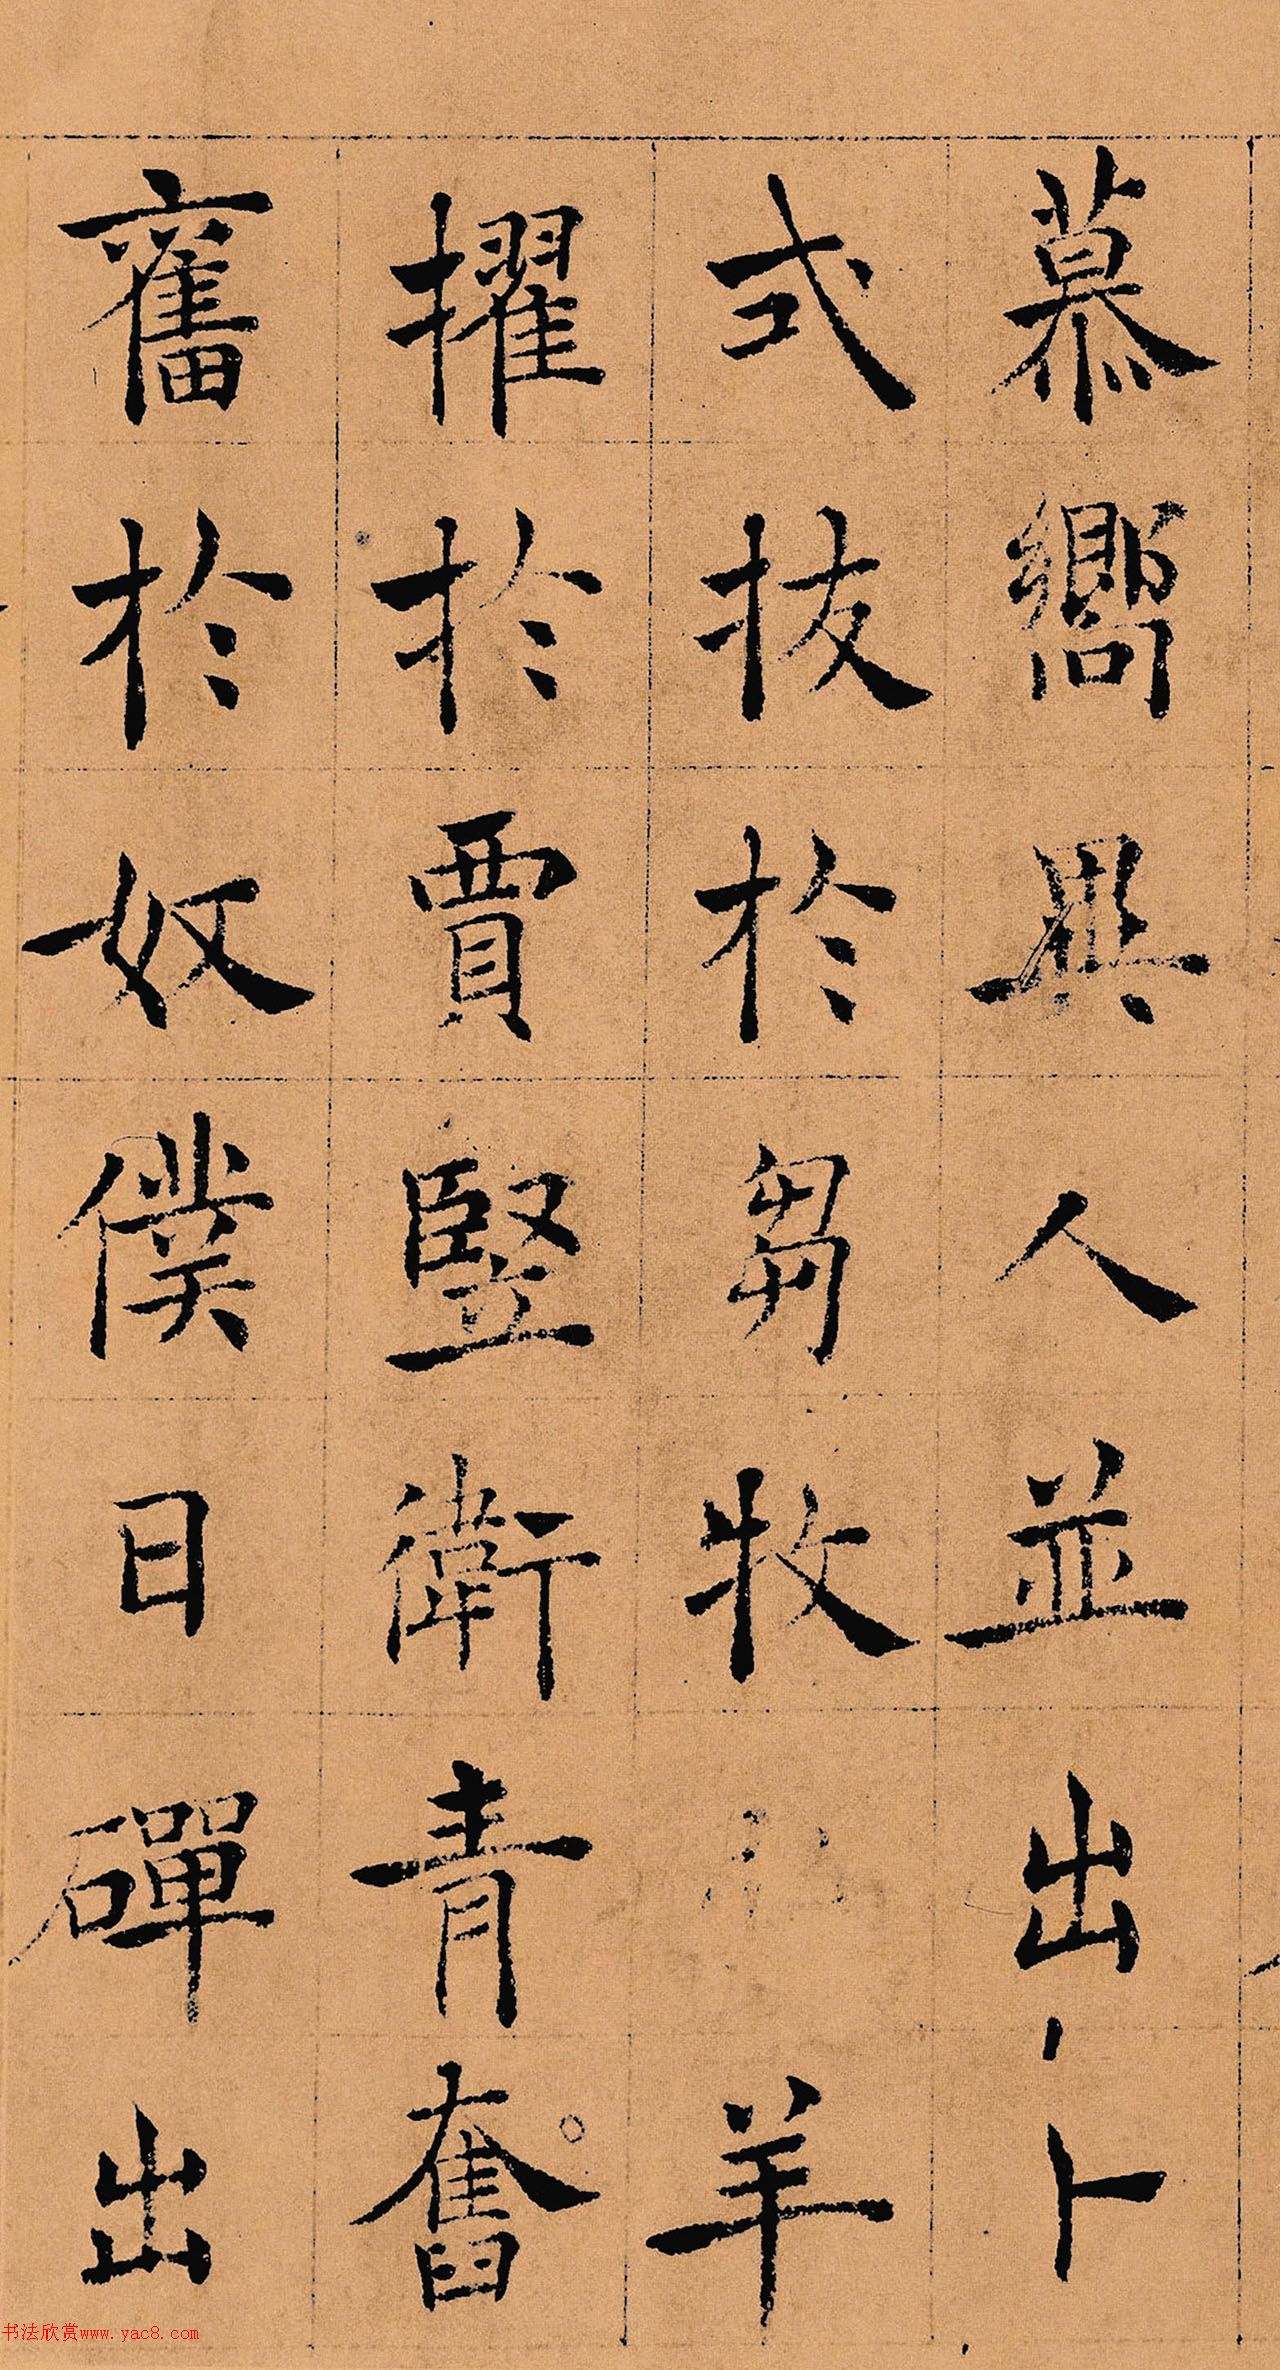 慕嚮異人並出卜
式拔於芻牧羊
擢於賈豎衛青奮
奮於奴僕日磾出
书法欣赏www.yac8.com